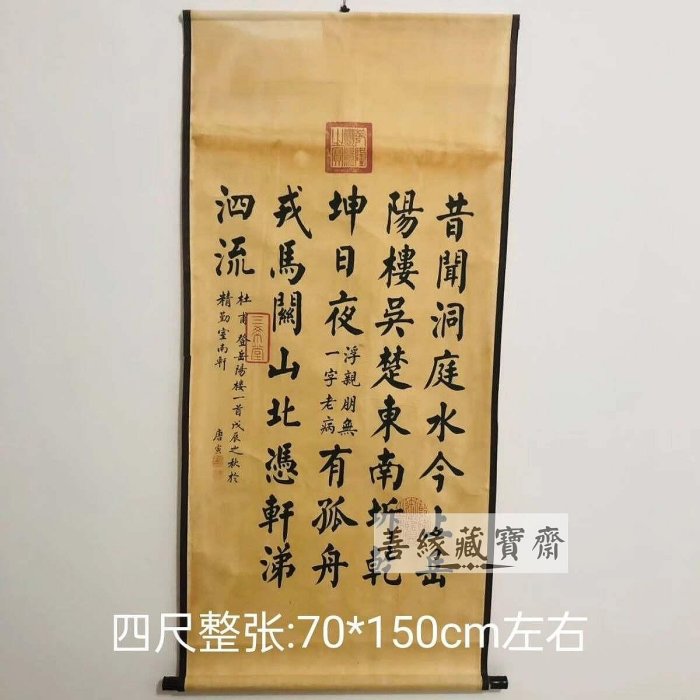 昔聞洞庭水今上岳
陽樓吳楚東南坼乾
坤日夜
浮親朋無
一字老病
有孤舟
戎馬關山北憑軒涕
泗流
杜甫登岳陽樓一首戊辰之秋於
精勤室南軒
唐寅
三希堂
善緣藏寶齋
四尺整张:70*150cm左右